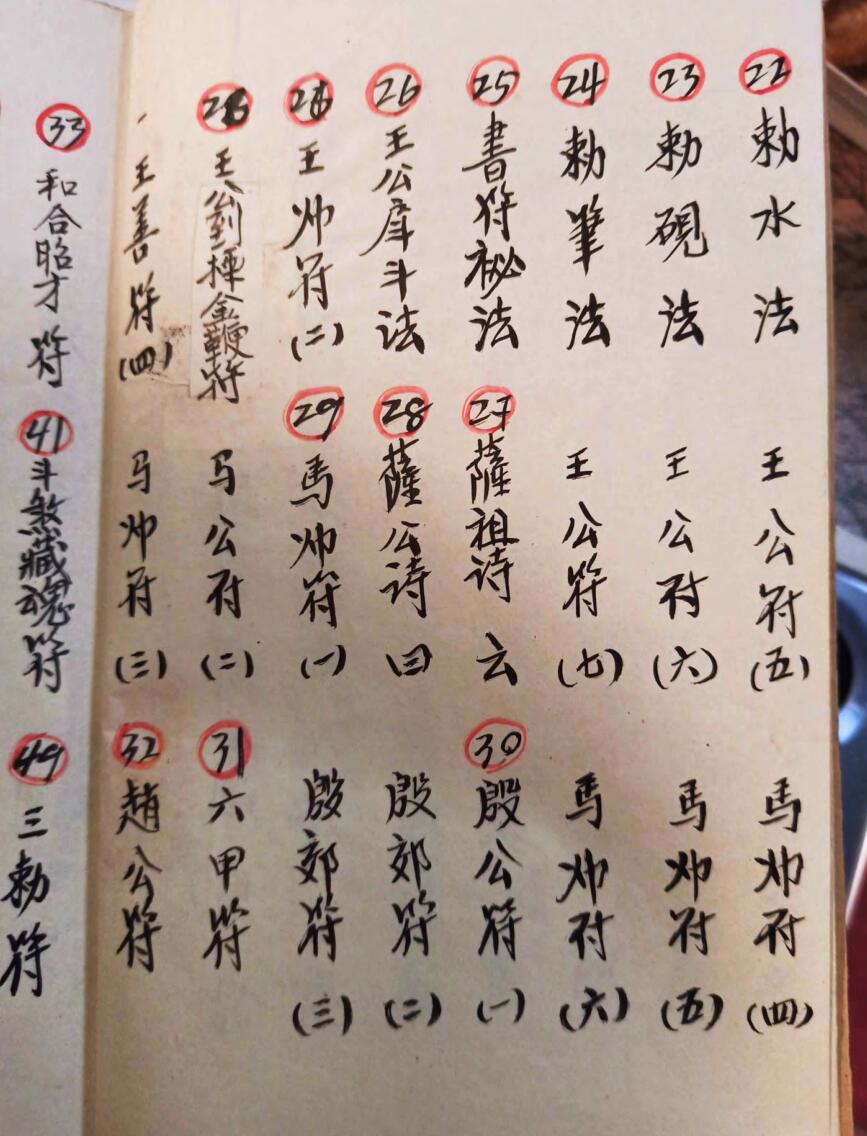 22 勅水法
23 勅硯法
24 勅筆法
25 書符祕法
26 王公罡斗法
王帅符(二)
王公剳揰金鞭符
王善符(四)
王公符(五)
王公符(六)
王公符(七)
27 薩祖诗 云
28 薩公诗 四
29 馬帅符(一)
马公符(二)
马帅符(三)
馬帅符(四)
馬帅符(五)
馬帅符(六)
30 殷公符(一)
殷郊符(二)
殷郊符(三)
31 六甲符
32 趙公符
33 和合昭才符
41 斗煞藏魂符
49 三勅符